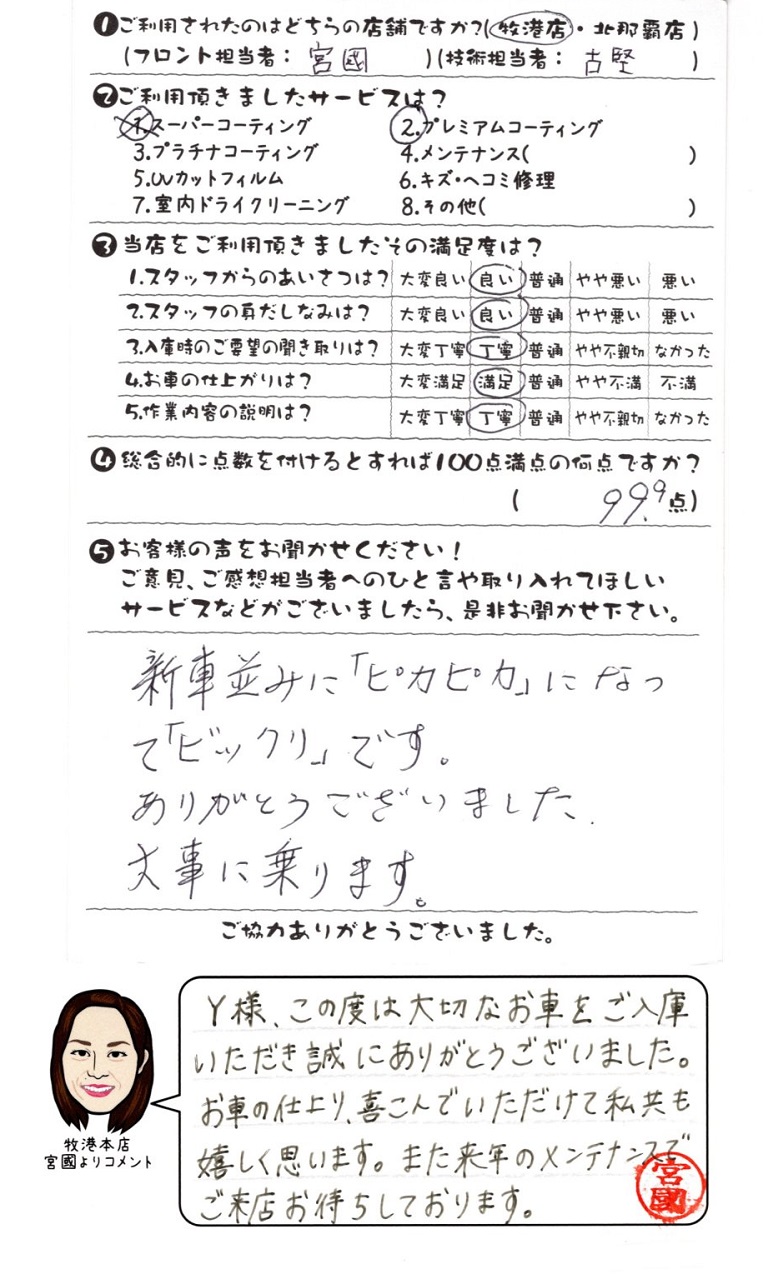 ❶ご利用されたのはどちらの店舗ですか?(牧港店・北那覇店)
(フロント担当者: 宮國 )(技術担当者: 古堅 )
❷ご利用頂きましたサービスは?
1.スーパーコーティング 2.プレミアムコーティング
3.プラチナコーティング 4.メンテナンス( )
5.UVカットフィルム 6.キズ・ヘコミ修理
7.室内ドライクリーニング 8.その他( )
❸当店をご利用頂きましたその満足度は?
1.スタッフからのあいさつは? 大変良い 良い 普通 やや悪い 悪い
2.スタッフの身だしなみは? 大変良い 良い 普通 やや悪い 悪い
3.入庫時のご要望の聞き取りは? 大変丁寧 丁寧 普通 やや不親切 なかった
4.お車の仕上がりは? 大変満足 満足 普通 やや不満 不満
5.作業内容の説明は? 大変丁寧 丁寧 普通 やや不親切 なかった
❹総合的に点数を付けるとすれば100点満点の何点ですか?
( 99.9点)
❺お客様の声をお聞かせください!
ご意見、ご感想担当者へのひと言や取り入れてほしい
サービスなどがございましたら、是非お聞かせ下さい。
新車並みに「ピカピカ」になっ
て「ビックリ」です。
ありがとうございました.
大事に乗ります。
ご協力ありがとうございました。
Y様、この度は大切なお車をご入庫
いただき誠にありがとうございました。
お車の仕上り、喜こんでいただけて私共も
嬉しく思います。また来年のメンテナンスで
ご来店お待ちしております。
宮國
牧港本店
宮國よりコメント